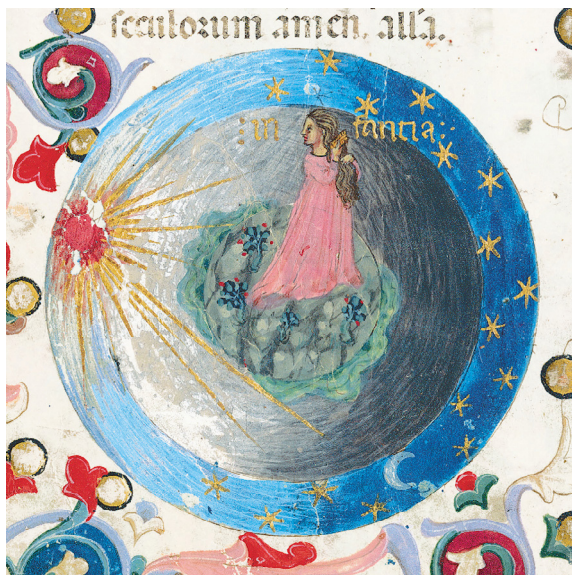 seculorum amen. alla.
:in fantia: